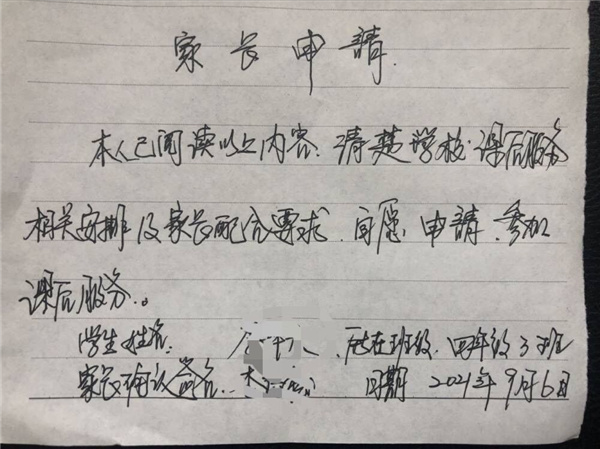 家长申请
本人已阅读以上内容.清楚学校课后服务
相关安排及家长配合要求.自愿申请.参加
课后服务。
学生姓名. 所在班级.四年级3班
家长确认签名. 日期 2021年9月6日